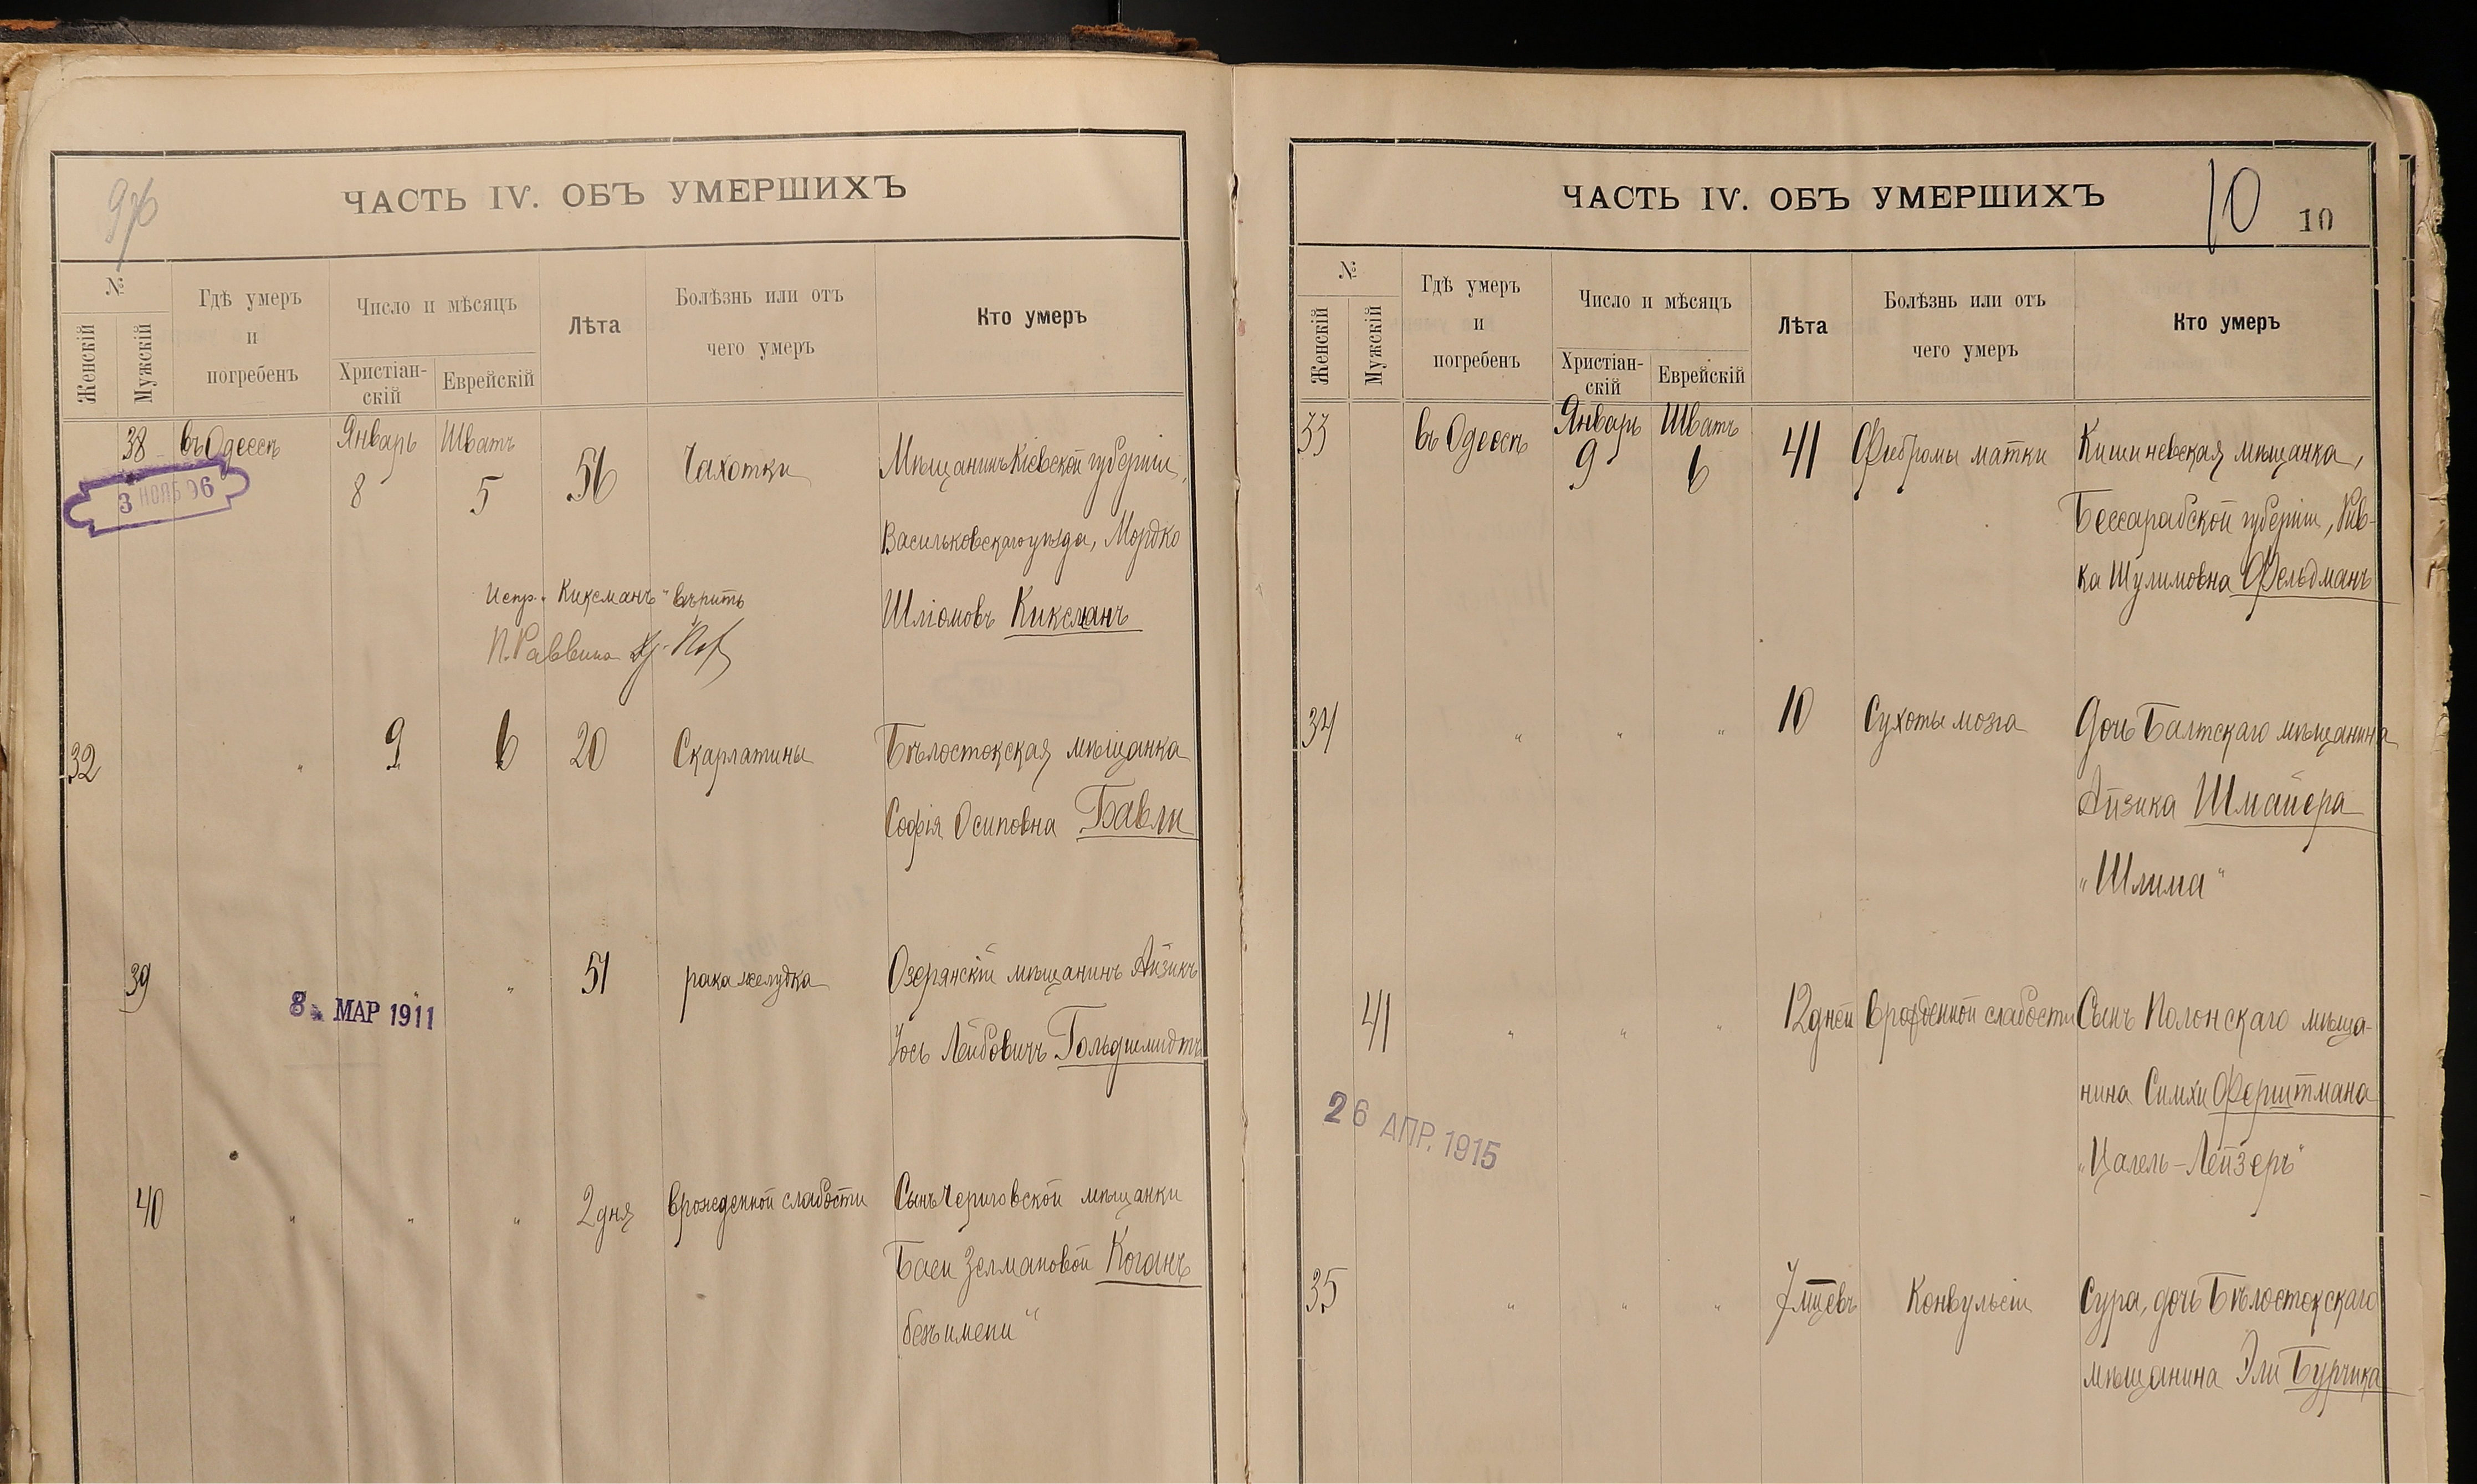 ЧАСТЬ IV. ОБЪ УМЕРШИХЪ
№
Женскій
Мужскій
Гдѣ умеръ
и
погребенъ
Число и мѣсяцъ
Христіан-
скій
Еврейскій
Лѣта
Болѣзнь или отъ
чего умеръ
Кто умеръ
38 въ Одессѣ Январь 8 Шватъ 5 56 Чахотки Мѣщанинъ Кіевской губерніи,
3 НОЯБ 96
Васильковскаго уѣзда, Мордко
Шліомовъ Киксманъ
Испр. "Киксманъ" вѣрить
П. Раввина
32 " 9 6 20 Скарлатины Бѣлостокская мѣщанка
Софія Осиповна Бавли
39 " " 51 рака желудка Озерянскій мѣщанинъ Айзикъ
8 МАР 1911
Іось Лейбовичъ Гольдшмидтъ
40 " " " 2 дня врожденной слабости Сынъ Черниговской мѣщанки
Баси Зелмановой Коганъ
безъ имени"
ЧАСТЬ IV. ОБЪ УМЕРШИХЪ
10
10
№
Женскій
Мужскій
Гдѣ умеръ
и
погребенъ
Число и мѣсяцъ
Христіан-
скій
Еврейскій
Лѣта
Болѣзнь или отъ
чего умеръ
Кто умеръ
33 въ Одессѣ Январь 9 Шватъ 6 41 Фибромы матки Кишиневская мѣщанка,
Бессарабской губерніи, Рив-
ка Шулимовна Фельдманъ
34 " " " 10 Сухоты мозга Дочь Балтскаго мѣщанина
Айзика Шмайера
"Шлима"
41 " " " 12 дней врожденной слабости Сынъ Полонскаго мѣща-
нина Симхи Ферштмана
26 АПР. 1915
"Цалель-Лейзеръ"
35 " " " 7 мцевъ Конвульсіи Сура, дочь Бѣлостокскаго
мѣщанина Эли Бурчика